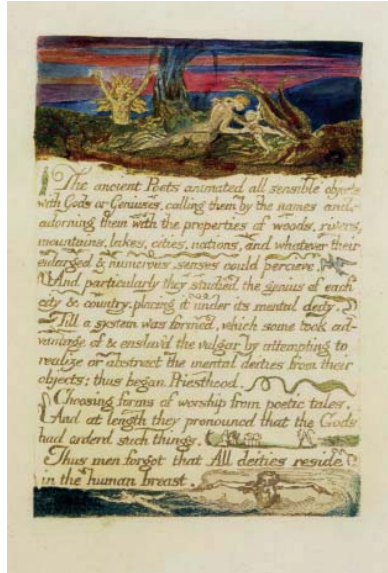 The ancient Poets animated all sensible objects
with Gods or Geniuses, calling them by the names and
adorning them with the properties of woods, rivers,
mountains, lakes, cities, nations, and whatever their
enlarged & numerous senses could percieve.
And particularly they studied the genius of each
city & country. placing it under its mental deity.
Till a system was formed, which some took ad-
vantage of & enslav'd the vulgar by attempting to
realize or abstract the mental deities from their
objects; thus began Priesthood.
Choosing forms of worship from poetic tales.
And at length they pronounced that the Gods
had orderd such things.
Thus men forgot that All deities reside
in the human breast.